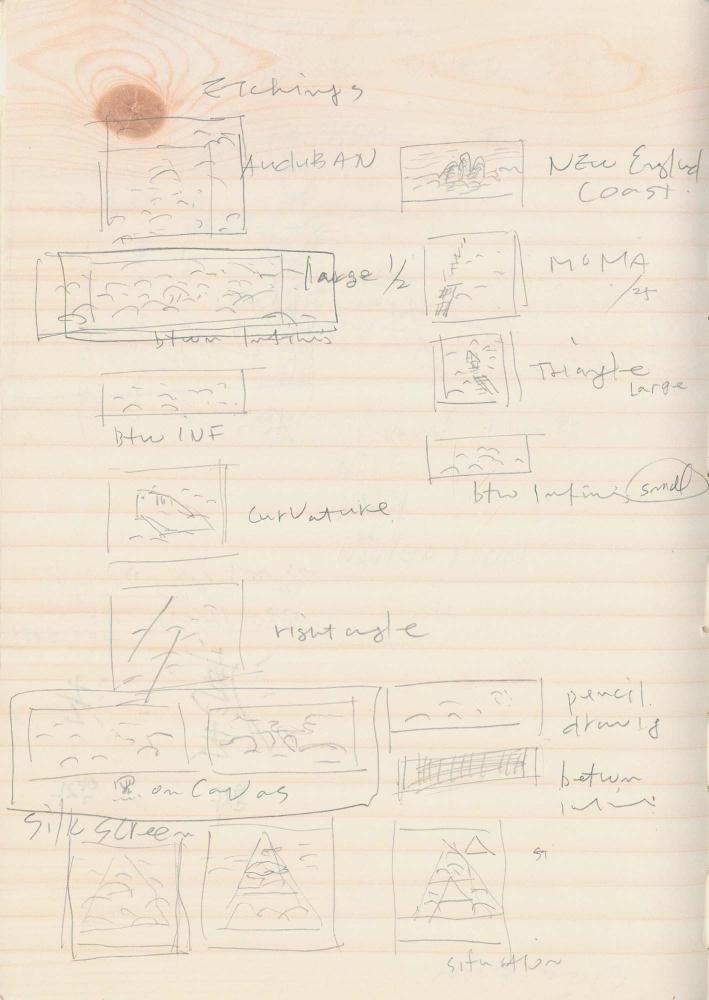 Etchings
AuduBAN
NEW Englnd
Coast.
large 1/2
MoMA
/25
btwn Infinis
Triangle
Large
Btw INF
btw Infinis small
curvature
right angle
pencil
drawig
on Canvas
between
Silk Screen
si
situation